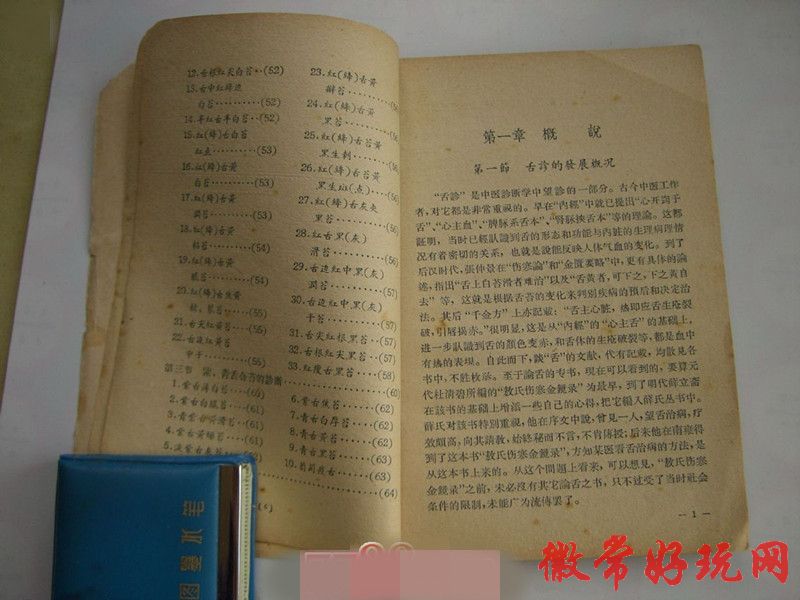 12.舌根紅尖白苔··(52)
13.舌中紅绛边
白苔·········(52)
14.半紅舌半白苔(52)
15.紅(绛)舌白苔
紅点·········(53)
16.紅(绛)舌黃
白苔·········(53)
17.紅(绛)舌黃
潤苔·········(53)
18.紅(绛)舌黃
粘苔·········(54)
19.紅(绛)舌黃
腻苔·········(54)
20.紅(绛)舌焦黃
苔·········(55)
21.舌尖紅黃苔(55)
22.舌边紅黃苔
中干·········(55)
23.紅(绛)舌黃
瓣苔·········(56)
24.紅(绛)舌黃
黑苔·········(56)
25.紅(绛)舌苔黃
黑生刺······(56)
26.紅(绛)舌苔黃
黑生斑(点)···(56)
27.紅(绛)舌灰
黑苔·········(57)
28.紅舌黑(灰)
滑苔·········(57)
29.舌边紅中黑(灰)
潤苔·········(57)
30.舌边紅中黑(灰)
干苔·········(57)
31.舌尖紅根黑苔··(57)
32.舌根紅尖黑苔··(58)
33.紅瘦舌黑苔···(58)
第三节 紫、青舌各苔的診断······(60)
1.紫舌薄白苔···(60)
2.青紫舌白腻苔···(61)
3.青紫舌黃滑苔···(61)
4.紫舌黃燥苔···(61)
6.紫舌伏苔······(62)
7.青舌白厚苔···(62)
8.青舌黃苔······(62)
9.青舌黑苔······(63)
10.葡萄疫舌······(63)
(64)
第一章 概 說
第一節 舌診的發展概况
“舌診”是中医診断学中望診的一部分。古今中医工作
者,对它都是非常重視的。早在“內經”中就已提出“心开窍于
舌”、“心主血”、“脾脉系舌本”、“腎脉挾舌本”等的理論。这都
証明,当时已經認識到舌的形态和功能与內脏的生理病理情
况有着密切的关系,也就是說能反映人体气血的变化。到了
后汉时代,張仲景在“伤寒論”和“金匱要略”中,更有具体的論
述,指出“舌上白苔滑者难治”以及“舌黃者,可下之,下之黃自
去”等,这就是根据舌苔的变化来判別疾病的預后和决定治
法。其后“千金方”上亦記載:“舌主心脏,热即应舌生疮裂
破,引唇揭赤。”很明显,这是从“內經”的“心主舌”的基础上,
进一步認識到舌的顏色变赤,和舌体的生疮破裂等,都是血中
有热的表現。自此而下,談“舌”的文献,代有記載,均散見各
书中,不胜枚举。至于論舌的专书,現在可以看到的,要算元
代杜清碧所編的“敖氏伤寒金鏡录”为最早,到了明代薛立斋
在該书的基础上增添一些自己的心得,把它編入薛氏丛书中。
薛氏对該书特別重視,他在序文中說,曾見一人,望舌治病,疗
效頗高,向其請教,始終秘而不言,不肯傳授;后来他在南雍得
到了这本书“敖氏伤寒金鏡录”,方知某医看舌治病的方法,是
从这本书上来的。从这个問題上看来,可以想見,“敖氏伤寒
金鏡录”之前,未必沒有其它論舌之书,只不过受了当时社会
条件的限制,未能广为流傳罢了。
— 1 —
囡墨水笔
徽常好玩网